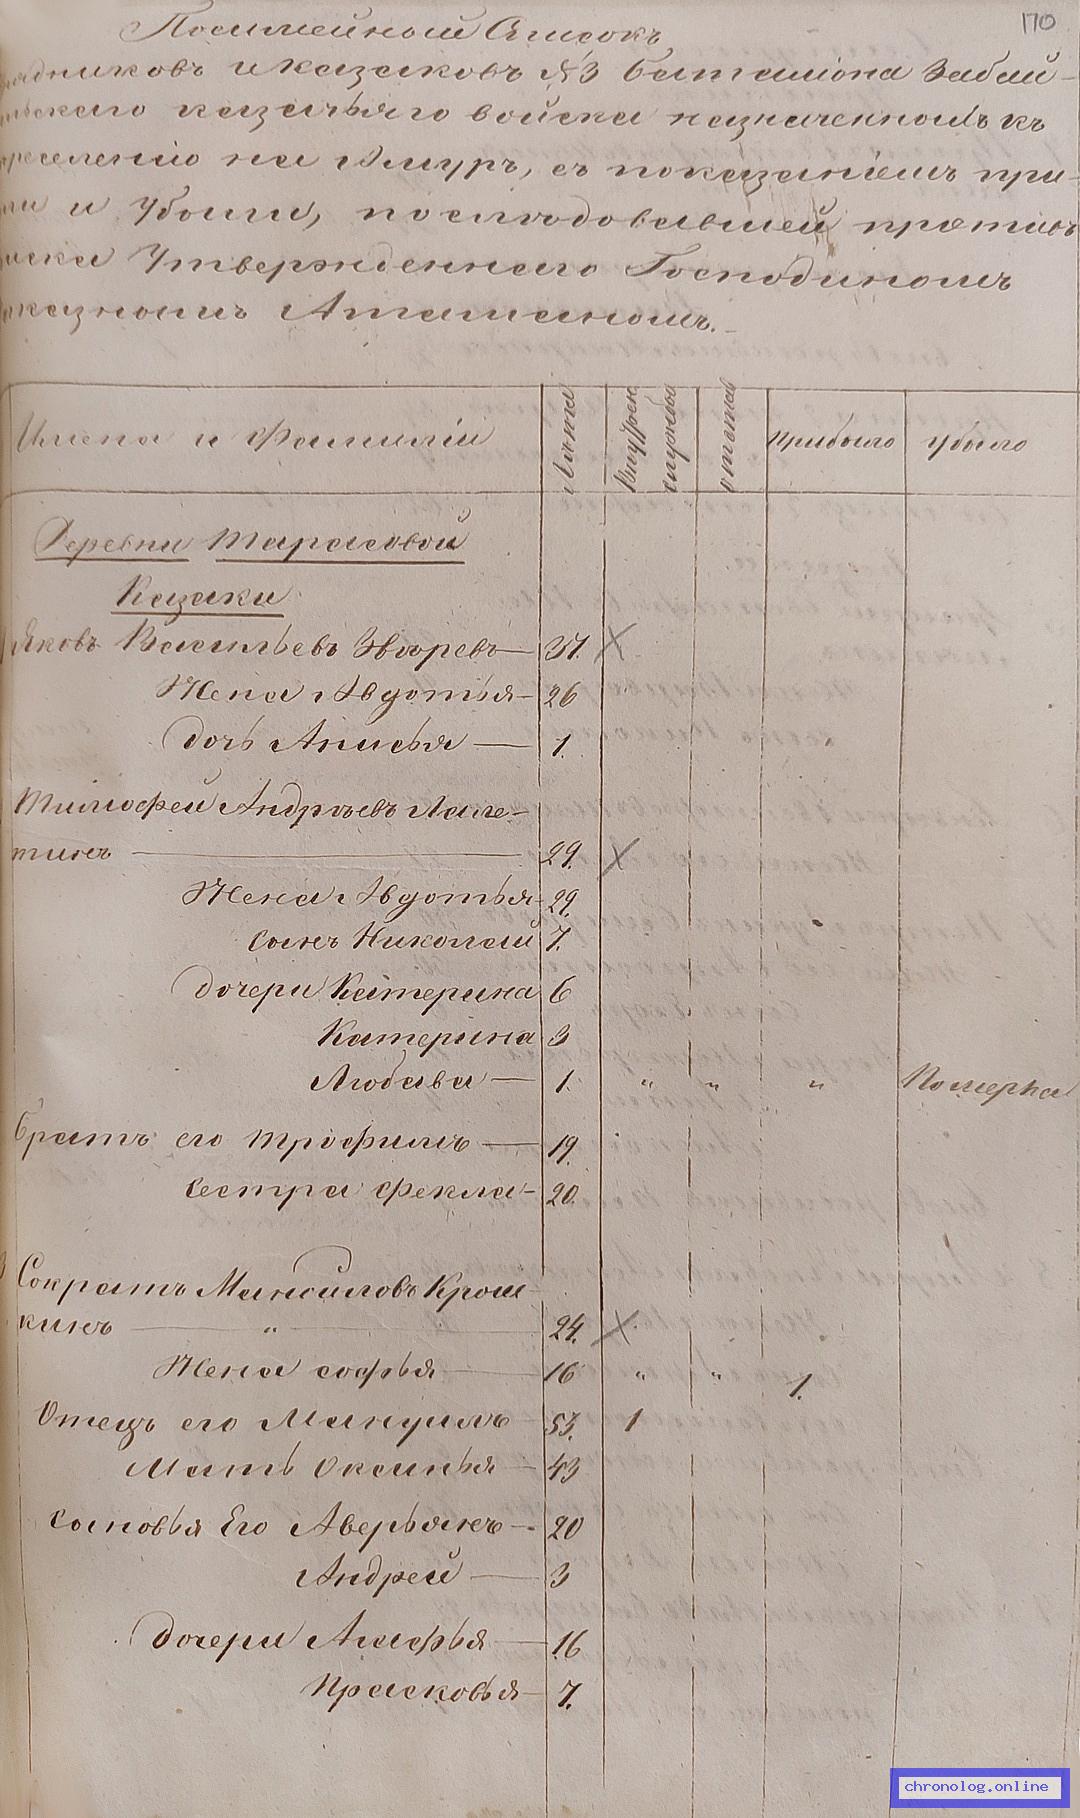 170
Посимейный Список
рядниковъ и казаковъ №3 баталiона Забай-
льскаго казачьяго войска назначенномъ къ
реселенiю на Амуръ, съ показанiемъ при-
ли и Убыли, последовавшей противъ
иска Утвержденнаго Господиномъ
казномъ Атаманомъ.
Имена и Фамилiи
Лѣта
Внутрен службы
отстав
прибыло
убыло
Деревни Тарасовой
Казаки
Яковъ Васильевъ Звѣревъ 37.
Жена Авдотья 26
дочь Анисья 1.
Тимофей Андрѣевъ Лапе-
тинъ 29.
Жена Авдотья 29.
сынъ Николай 7.
дочери Катерина 6
Катерина 3
Любава 1. " " " Померла
братъ его Трофимъ 19.
сестра Фекла 20.
Сократъ Мануиловъ Крош-
кинъ " 24.
Жена софья 16 " " 1.
Отецъ его Мануилъ 53. 1
Мать Оксинья 43
сыновья Его Аверьянъ 20
Андрей 3
дочери Агафья 16
Прасковья 7.
chronolog.online